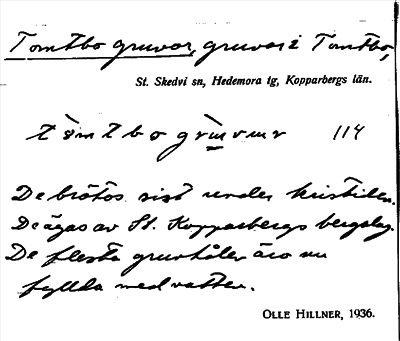 Tomtbo gruvor, gruvor i Tomtbo,
St. Skedvi sn, Hedemora tg, Kopparbergs län.
114
De brötos sist under kristiden.
De ägas av St. Kopparbergs bergslag.
De flesta gruvhålen äro nu
fyllda med vatten.
OLLE HILLNER, 1936.